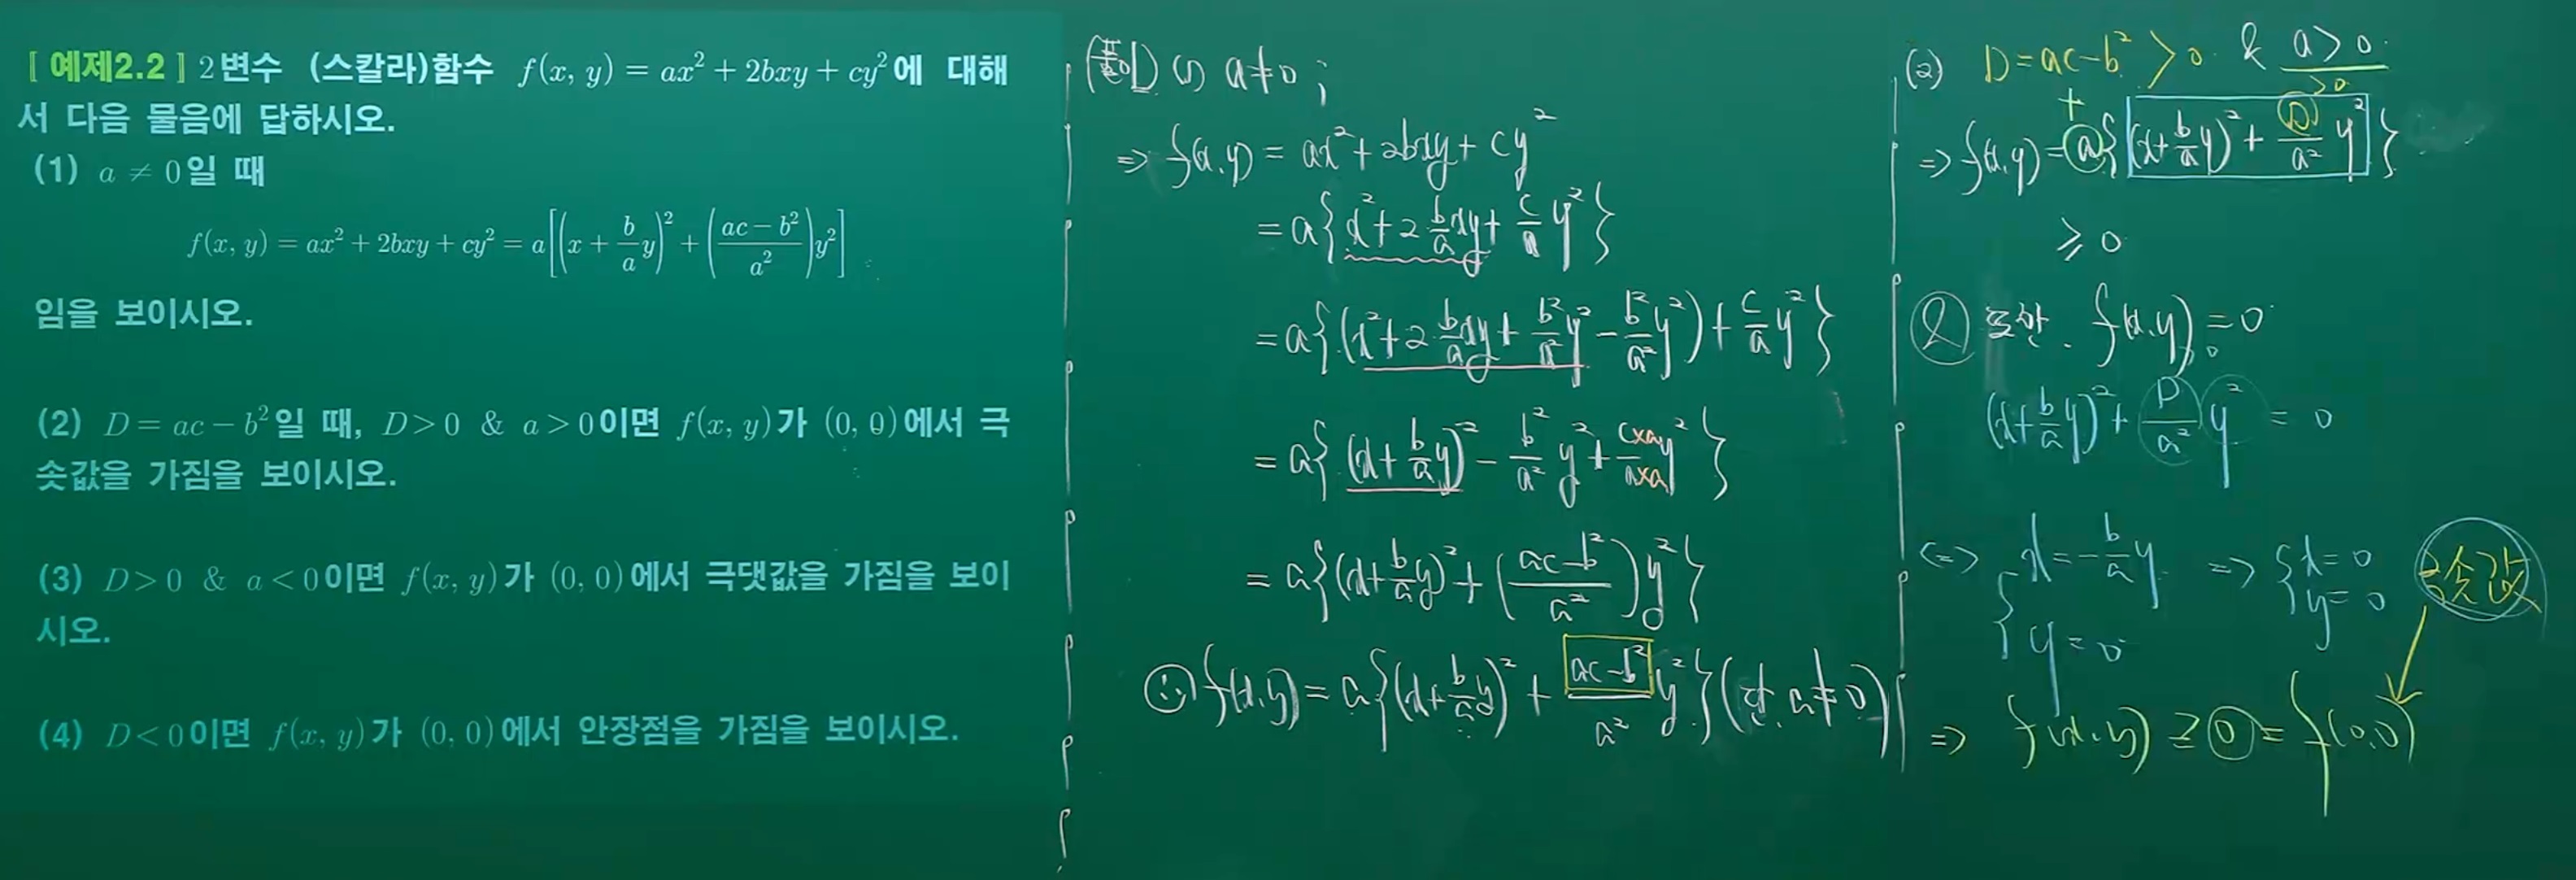 [ 예제2.2 ] 2변수 (스칼라)함수 f(x, y) = ax² + 2bxy + cy²에 대해
서 다음 물음에 답하시오.
(1) a ≠ 0일 때
f(x, y) = ax² + 2bxy + cy² = a[(x + b/a y)² + ((ac - b²)/a²)y²]
임을 보이시오.
(2) D = ac - b²일 때, D > 0 & a > 0이면 f(x, y)가 (0, 0)에서 극
솟값을 가짐을 보이시오.
(3) D > 0 & a < 0이면 f(x, y)가 (0, 0)에서 극댓값을 가짐을 보이
시오.
(4) D < 0이면 f(x, y)가 (0, 0)에서 안장점을 가짐을 보이시오.
(1) a ≠ 0 ;
⇒ f(x, y) = ax² + 2bxy + cy²
= a{x² + 2 b/a xy + c/a y²}
= a{(x² + 2 b/a xy + b²/a² y² - b²/a² y²) + c/a y²}
= a{(x + b/a y)² - b²/a² y² + c×a/a×a y²}
= a{(x + b/a y)² + ((ac - b²)/a²)y²}
∴ f(x, y) = a{(x + b/a y)² + (ac - b²)/a² y²} (단, a ≠ 0)
(2) D = ac - b² > 0 & a > 0
+ > 0
⇒ f(x, y) = a{(x + b/a y)² + D/a² y²}
≥ 0
② 또한, f(x, y) = 0
(x + b/a y)² + D/a² y² = 0
⇔ { x = -b/a y, y = 0 ⇒ { x = 0, y = 0
극솟값
⇒ f(x, y) ≥ 0 = f(0, 0)